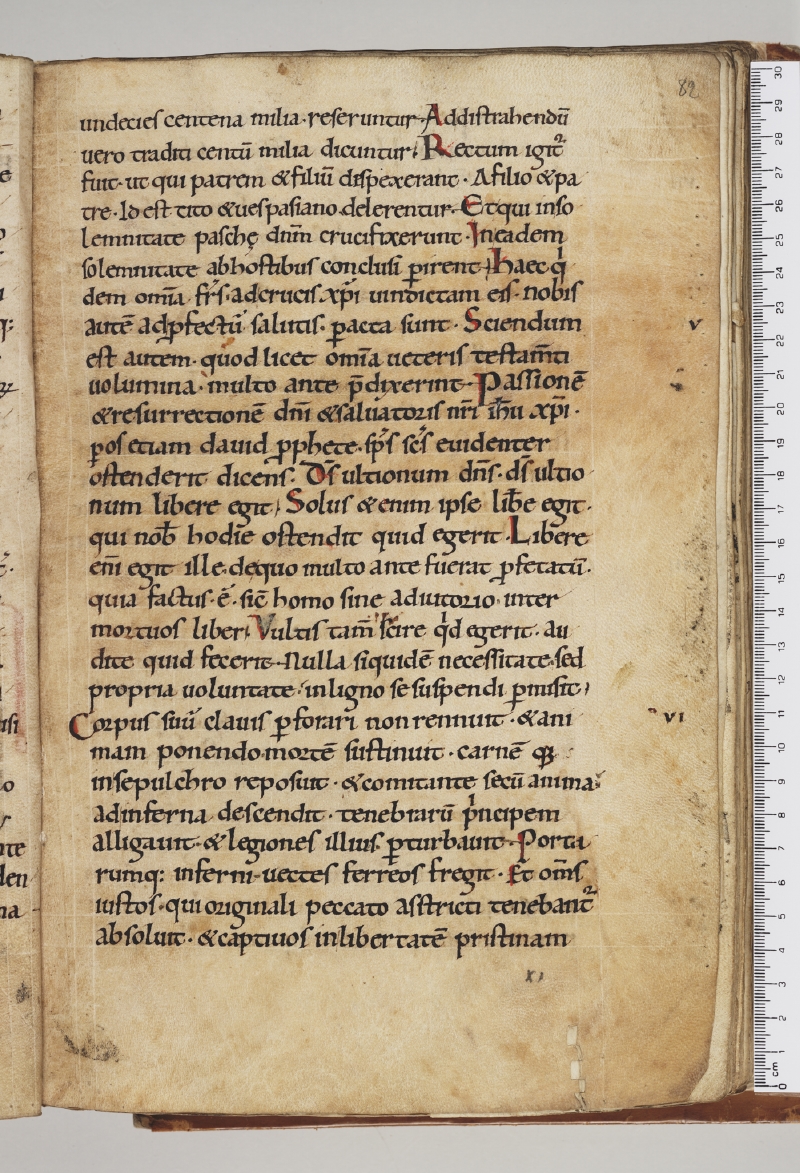 82
undecies centena milia· reseruntur· Addistrahendū
uero traditi centū milia dicuntur; Rectum igit᷑
fuit· ut qui patrem &filiū dispexerant· Afilio &pa
tre· Id est tito &uespasiano delerentur· Etqui inso
lemnitate paschę dnm̄ crucifixerunt· Ineadem
solemnitate abhostibus conclusi ꝑirent; Haec q̇
dem omīa fr̄s· adcrucis xp̄i uindictam eis· nobis
autē adꝑfectū salutis· ꝑacta sunt· Sciendum
v
est autem· quod licet omīa ueteris testam̄ti
uolumina· multo ante p̄dixerint· Passionē
&resurrectionē dn̄i &saluatoris nr̄i ih̄u xp̄i·
pos etiam dauid ꝓphete· sp̄s sc̄s euidenter
ostenderit dicens· Ds̄ ultionum dn̄s· ds̄ ultio
num libere egit; Solus &enim ipse lib̄e egit·
qui nob̄ hodie ostendit quid egerit· Libere
eni̅ egit ille· dequo multo ante fuerat ꝓfetatū·
quia factus· ē· sic̄ homo sine adiutorio· inter
mortuos liber; Vultis tam̄ scire qḋ egerit· au
dite quid fecerit· Nulla siquidē necessitate· sed
propria uoluntate· inligno se suspendi ꝑmisit;
Corpus suū clauis ꝑforari non rennuit· &ani
vi
mam ponendo· mortē sustinuit· carnē q;
insepulchro reposuit· &comitante secū anima·
adinferna descendit· tenebrarū pͥncipem
alligauit· &legiones illius ꝑturbauit· Porta
rumq: inferni· uectes ferreos fregit· Et om̄s
iustos· qui originali peccato astricti tenebant᷑
absoluit· &captiuos inlibertatē pristinam
xi